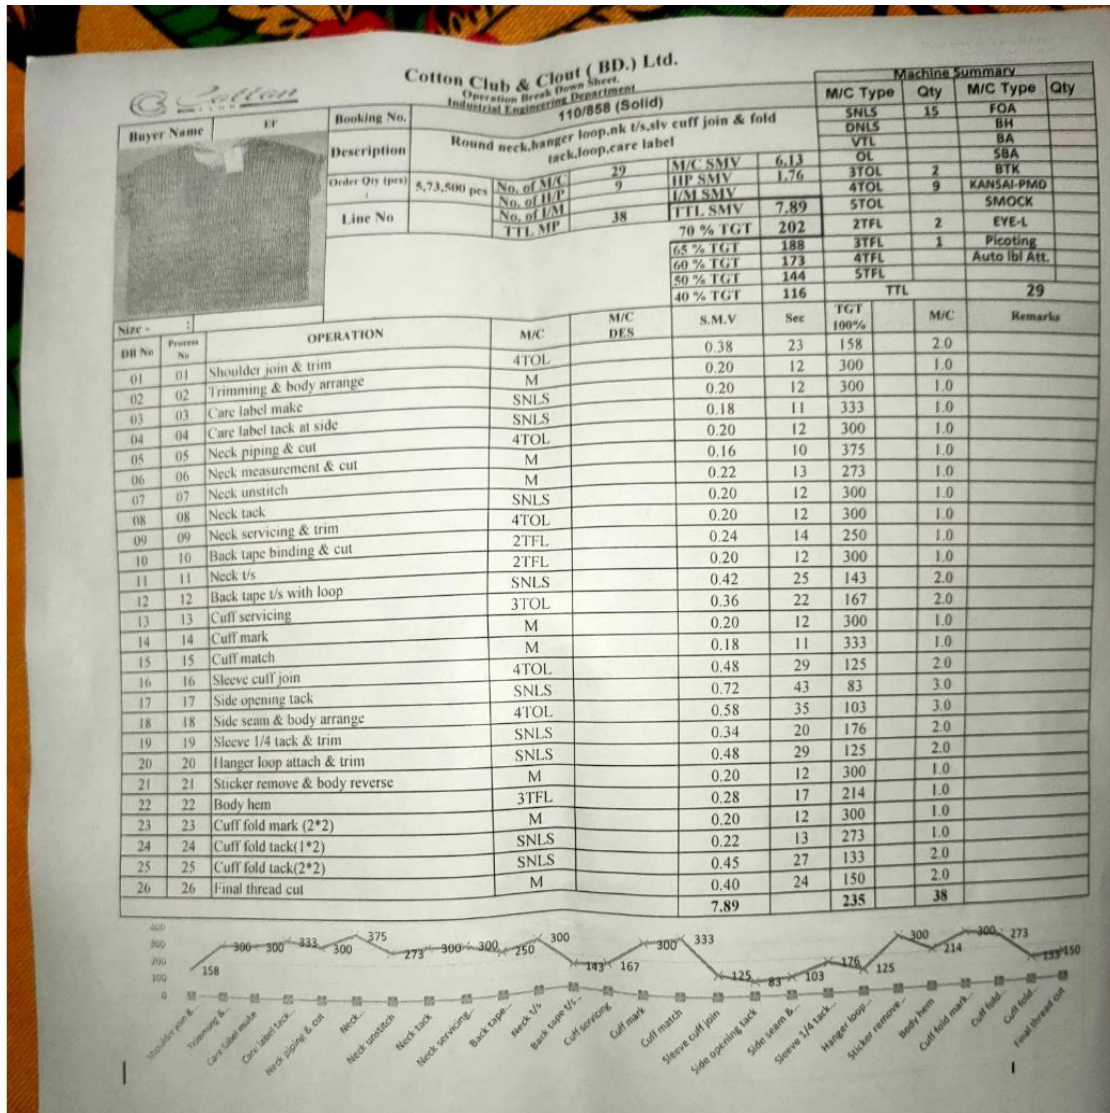 Cotton Club & Clout ( BD.) Ltd.
Operation Break Down Sheet.
Industrial Engineering Department
Cotton
CLUB
Buyer Name EF
Booking No. 110/858 (Solid)
Description Round neck,hanger loop,nk t/s,slv cuff join & fold
tack,loop,care label
Order Qty (pcs) : 5,73,500 pcs
Line No
No. of M/C 29
No. of H/P 9
No. of I/M
TTL MP 38
M/C SMV 6.13
HP SMV 1.76
I/M SMV
TTL SMV 7.89
70 % TGT 202
65 % TGT 188
60 % TGT 173
50 % TGT 144
40 % TGT 116
Machine Summary
M/C Type Qty M/C Type Qty
SNLS 15 FOA
DNLS BH
VTL BA
OL SBA
3TOL 2 BTK
4TOL 9 KANSAI-PMD
5TOL SMOCK
2TFL 2 EYE-L
3TFL 1 Picoting
4TFL Auto lbl Att.
5TFL
TTL 29
Size - :
DB No Process No OPERATION M/C M/C DES S.M.V Sec TGT 100% M/C Remarks
01 01 Shoulder join & trim 4TOL 0.38 23 158 2.0
02 02 Trimming & body arrange M 0.20 12 300 1.0
03 03 Care label make SNLS 0.20 12 300 1.0
04 04 Care label tack at side SNLS 0.18 11 333 1.0
05 05 Neck piping & cut 4TOL 0.20 12 300 1.0
06 06 Neck measurement & cut M 0.16 10 375 1.0
07 07 Neck unstitch M 0.22 13 273 1.0
08 08 Neck tack SNLS 0.20 12 300 1.0
09 09 Neck servicing & trim 4TOL 0.20 12 300 1.0
10 10 Back tape binding & cut 2TFL 0.24 14 250 1.0
11 11 Neck t/s 2TFL 0.20 12 300 1.0
12 12 Back tape t/s with loop SNLS 0.42 25 143 2.0
13 13 Cuff servicing 3TOL 0.36 22 167 2.0
14 14 Cuff mark M 0.20 12 300 1.0
15 15 Cuff match M 0.18 11 333 1.0
16 16 Sleeve cuff join 4TOL 0.48 29 125 2.0
17 17 Side opening tack SNLS 0.72 43 83 3.0
18 18 Side seam & body arrange 4TOL 0.58 35 103 3.0
19 19 Sleeve 1/4 tack & trim SNLS 0.34 20 176 2.0
20 20 Hanger loop attach & trim SNLS 0.48 29 125 2.0
21 21 Sticker remove & body reverse M 0.20 12 300 1.0
22 22 Body hem 3TFL 0.28 17 214 1.0
23 23 Cuff fold mark (2*2) M 0.20 12 300 1.0
24 24 Cuff fold tack(1*2) SNLS 0.22 13 273 1.0
25 25 Cuff fold tack(2*2) SNLS 0.45 27 133 2.0
26 26 Final thread cut M 0.40 24 150 2.0
7.89 235 38
400
300
200
100
0
158 300 300 333 300 375 273 300 300 250 300 143 167 300 333 125 83 103 176 125 300 214 300 273 133 150
Shoulder join &...
Trimming &...
Care label make
Care label tack...
Neck piping & cut
Neck...
Neck unstitch
Neck tack
Neck servicing...
Back tape...
Neck t/s
Back tape t/s...
Cuff servicing
Cuff mark
Cuff match
Sleeve cuff join
Side opening tack
Side seam &...
Sleeve 1/4 tack...
Hanger loop...
Sticker remove...
Body hem
Cuff fold mark...
Cuff fold...
Cuff fold...
Final thread cut